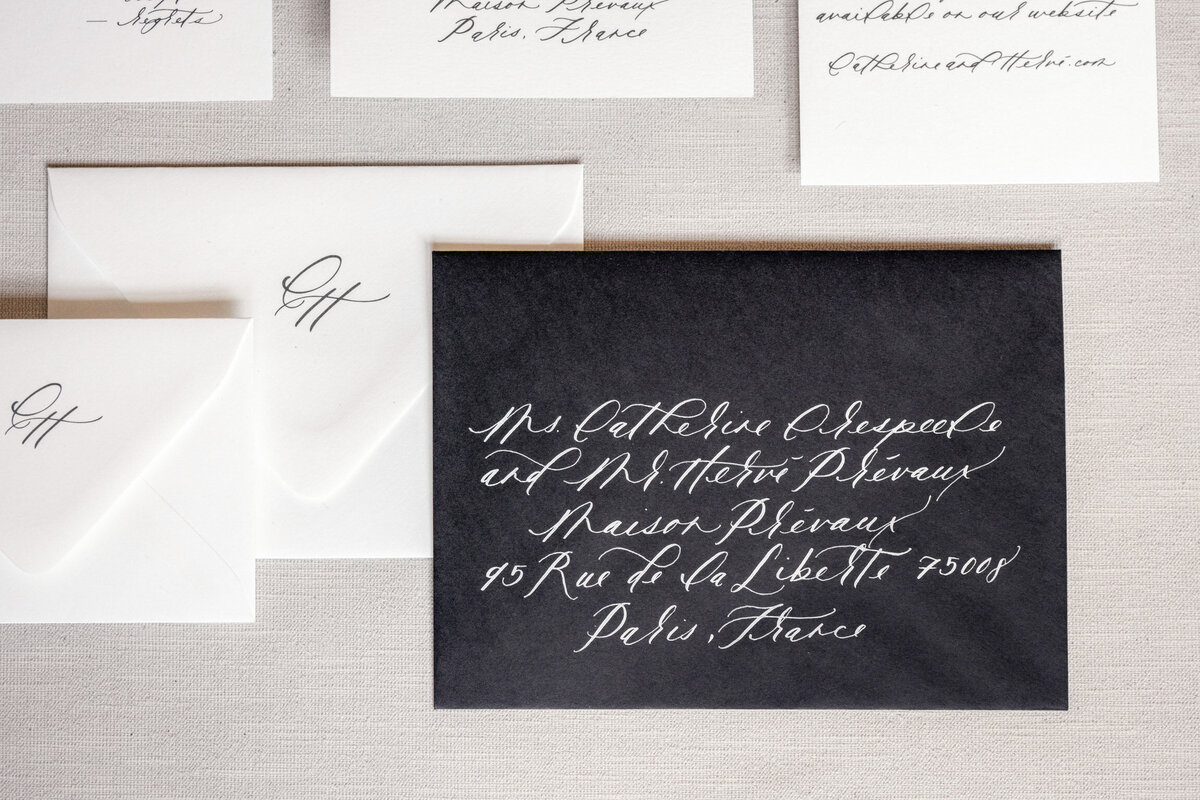 regrets
Maison Prévaux
Paris, France
available on our website
CatherineandHervé.com
CH
CH
Ms. Catherine Crespelle
and Mr. Hervé Prévaux
Maison Prévaux
95 Rue de la Liberte 75008
Paris, France